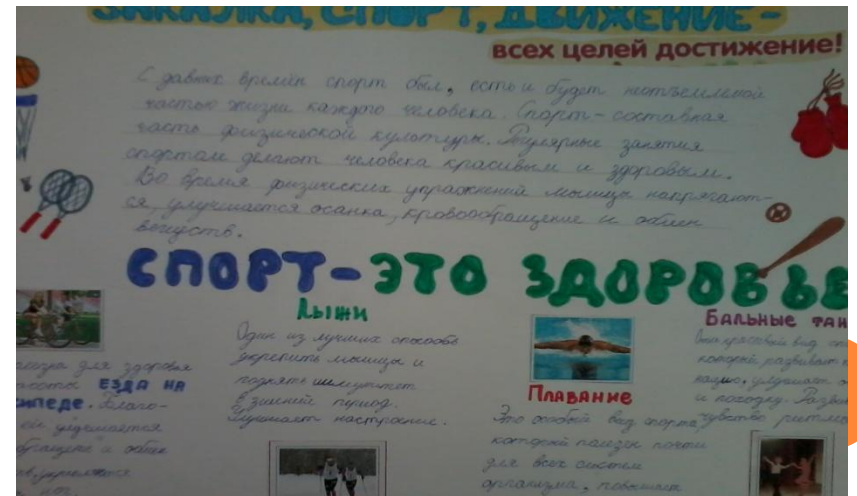 ЗАКАЛКА, СПОРТ, ДВИЖЕНИЕ -
всех целей достижение!
С давних времён спорт был, есть и будет неотъемлемой
частью жизни каждого человека. Спорт - составная
часть физической культуры. Регулярные занятия
спортом делают человека красивым и здоровым.
Во время физических упражнений мышцы напрягают-
ся, улучшается осанка, кровообращение и обмен
веществ.
СПОРТ-ЭТО ЗДОРОВЬЕ
для здоровья
ЕЗДА НА
Благо-
улучшается
и обмен
Лыжи
Один из лучших способов
укрепить мышцы и
поднять иммунитет
в зимний период.
Улучшает настроение.
Плавание
Это особый вид спорта,
который полезен почти
для всех систем
организма, повышает
Бальные тан
красивый вид сп
который развивает
улучшает
и походку. Разви
чувство ритма